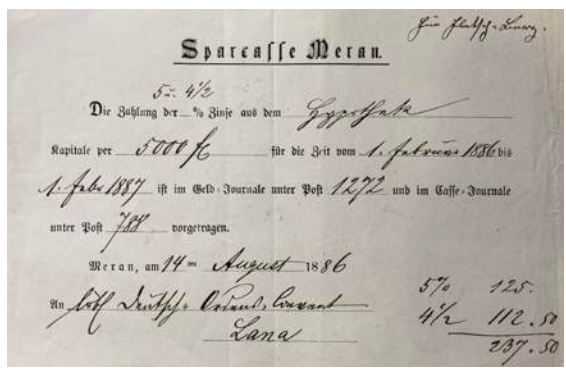 Sparcasse Meran.
5 u. 4 1/2
Die Zahlung der % Zinse aus dem Hypothek
Kapitale per 5000 fl für die Zeit vom 1. Februar 1886 bis
1. Febr 1887 ist im Geld-Journale unter Post 1272 und im Casse-Journale
unter Post 788 vorgetragen.
Meran, am 14ten August 1886
5% 125.
An löbl Deutsch-Ordens-Convent
4 1/2 112.50
Lana
237.50